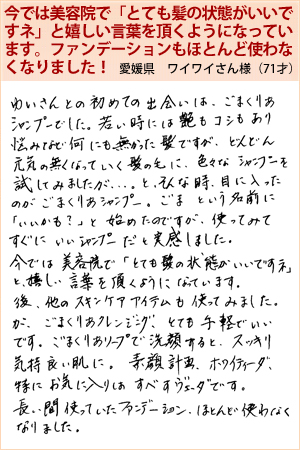 今では美容院で「とても髪の状態がいいで
すネ」と嬉しい言葉を頂くようになってい
ます。ファンデーションもほとんど使わな
くなりました！ 愛媛県 ワイワイさん様（71才）
ゆいさんとの初めての出会いは、ごまくりあ
シャンプーでした。若い時には艶もコシもあり
悩みなど何にも無かった髪ですが、どんどん
元気の無くなっていく髪の毛に、色々なシャンプーを
試してみましたが...。と、そんな時、目に入った
のがごまくりあシャンプー。ごまという名前に
「いいかも？」と始めたのですが、使ってみて
すぐにいいシャンプーだと実感しました。
今では美容院で「とても髪の状態がいいですネ」
と、嬉しい言葉を頂くようになっています。
後、他のスキンケアアイテムも使ってみました。
が、ごまくりあクレンジング、とても手軽でいい
です。ごまくりあソープで洗顔すると、スッキリ
気持良い肌に。素顔計画、ホワイティーダ、
特にお気に入りはすべすヴェーダです。
長い間使っていたファンデーション、ほとんど使わなく
なりました。